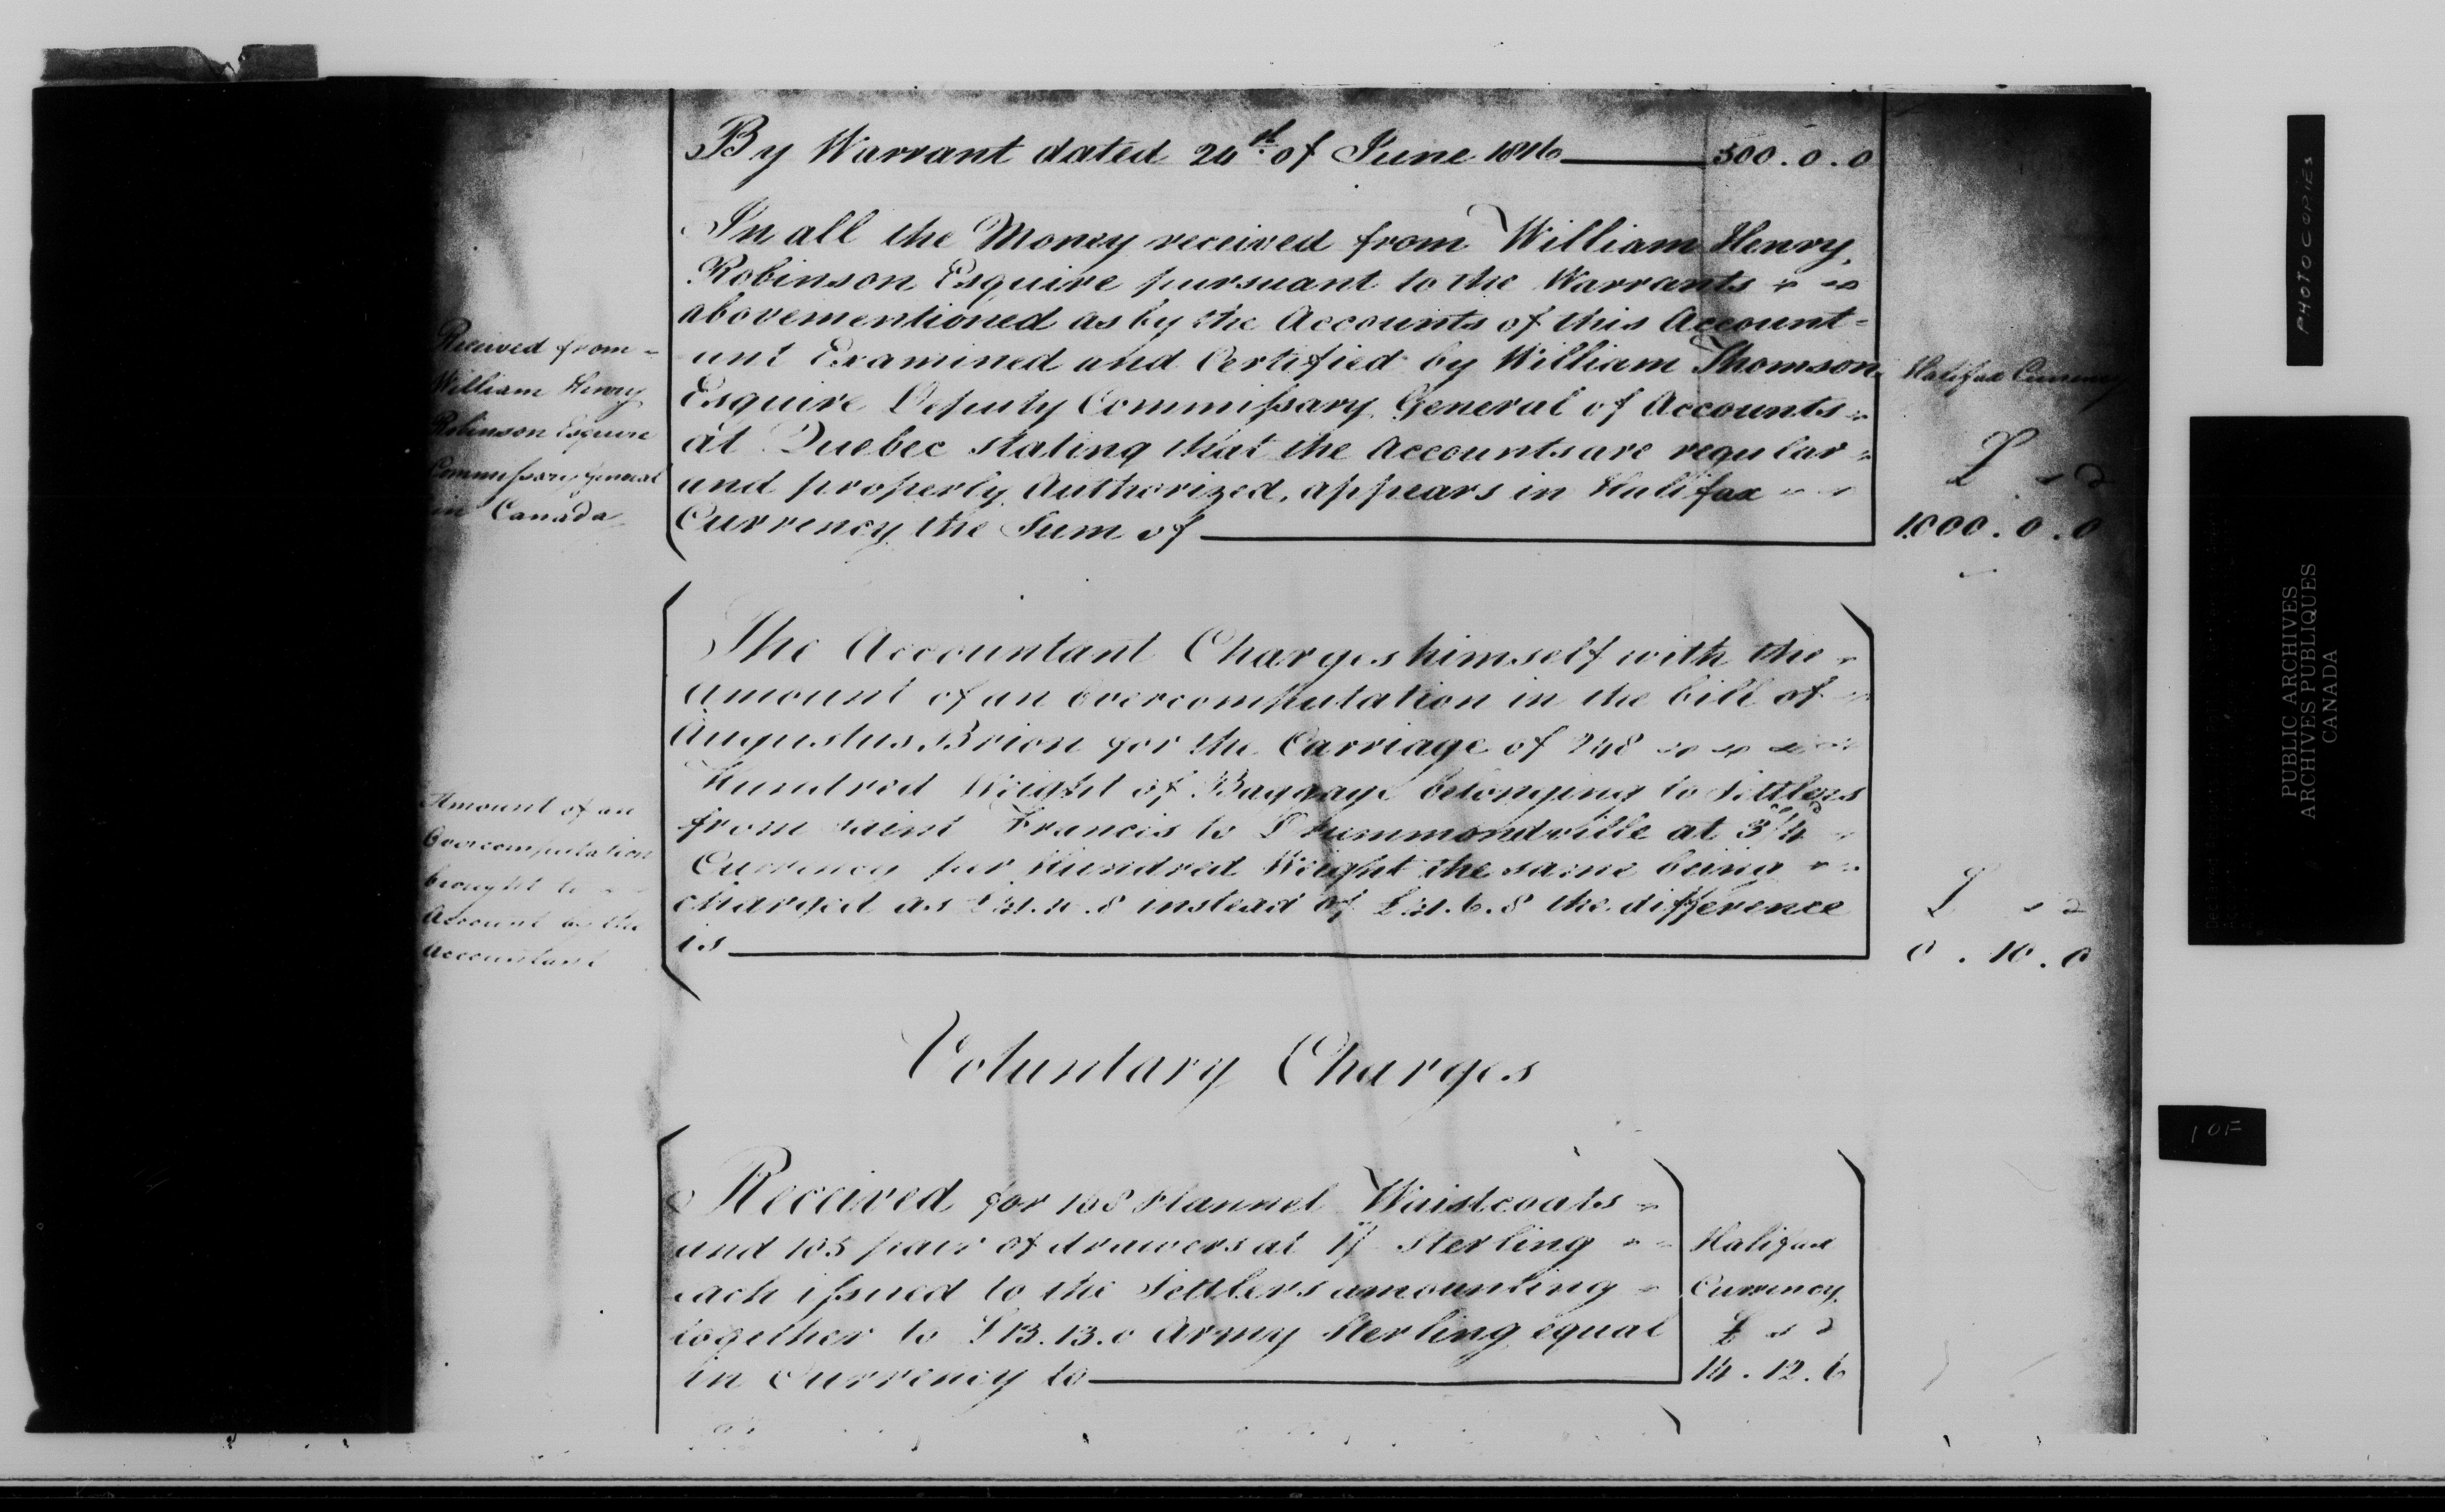 By Warrant dated 24th of June 1816 500.0.0
In all the Money received from William Henry
Robinson Esquire pursuant to the Warrants
abovementioned as by the Accounts of this Account-
ant Examined and Certified by William Thomson
Esquire Deputy Commissary General of Accounts
at Quebec stating that the Accounts are regular
and properly Authorized, appears in Halifax
Currency the Sum of
Received from
William Henry
Robinson Esquire
Commissary General
in Canada
Halifax Currency
£ s d
1000.0.0
The Accountant Charges himself with the
Amount of an Overcomputation in the bill of
Augustus Brion for the Carriage of 248
Hundred Weight of Baggage belonging to Settlers
from Saint Francis to Drummondville at 3/4
Currency per Hundred Weight the same being
charged as instead of the difference
is
Amount of an
Overcomputation
brought to
Account by the
Accountant
£ s d
0.10.0
Voluntary Charges
Received for 168 Flannel Waistcoats
and 105 pair of drawers at 1/ Sterling
each issued to the Settlers amounting
together to £13.13.0 Army Sterling equal
in Currency to
Halifax
Currency
£ s d
14.12.6
PHOTOCOPIES
PUBLIC ARCHIVES
ARCHIVES PUBLIQUES
CANADA